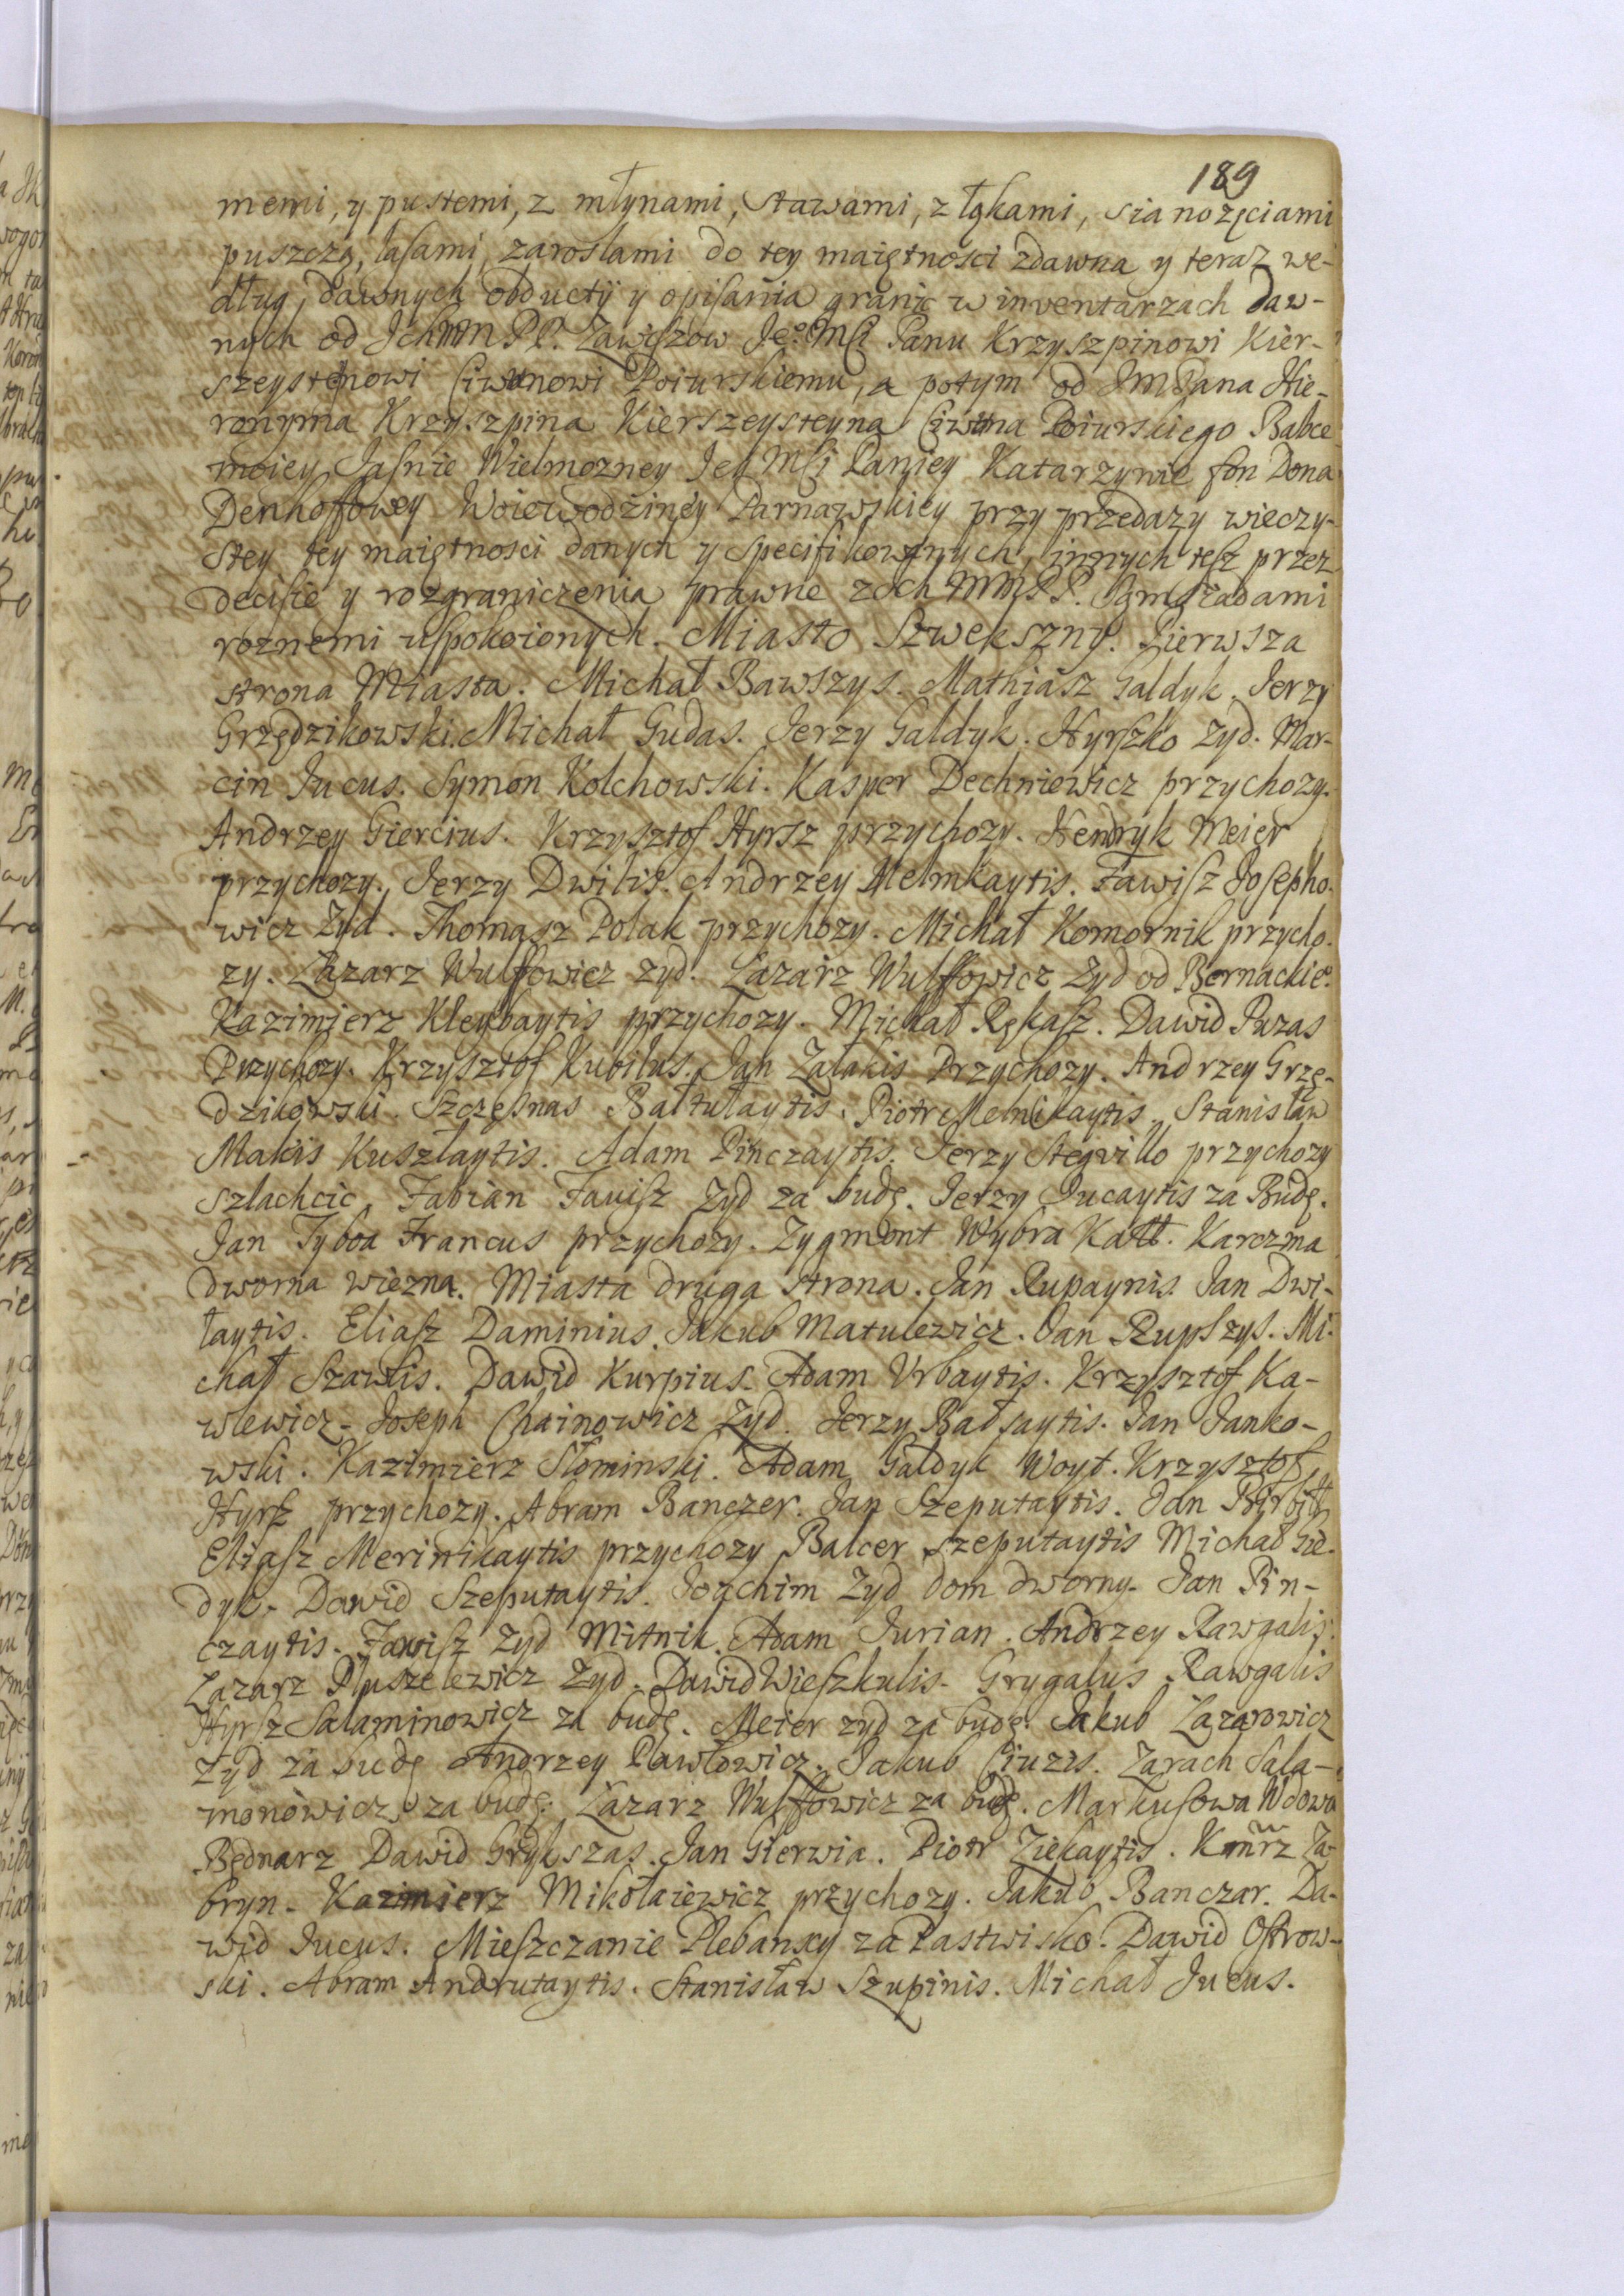 189
memi, y pustemi, z młynami, stawami, z łąkami, sianożęciami
puszczą, lasami, zaroslami do tey maiętnosci zdawna y teraz we-
dług dawnych obductÿ y opisania granic w inventarzach daw-
nych od Ichmm PP. Zawiszow Je͠º Msči Panu Krzyszpinowi Kier-
szeysteynowi Ciwunowi Poiurskiemu, a potym od JmPana Hie-
ronyma Krzyszpina Kierszeysteyna Ciwuna Poiurskiego Babce
moiey Jaśnie Wielmozney Jey Msči Paniey Katarzynie fon Dona
Denhoffowey Woiewodziney Parnawskiey przy przedazy wieczy-
stey tey maiętnosci danych y specifikowanych, innych tesz przez
decisie y rozgraniczenia prawne zoch MMPP. Sąmsiadami
roznemi uspokoionych. Miasto Szwekszny. Pierwsza
strona Miasta. Michał Bawszys. Mathiasz Galdyk. Jerzy
Grzędzikowski. Michał Gudas. Jerzy Galdyk. Hyrszko Zyd. Mar-
cin Jucus. Symon Kolchowski. Kasper Dechniewicz przychozy.
Andrzey Giercius. Krzysztof Hyrsz przychozy. Hendryk Meier
przychozy. Jerzy Dwilis. Andrzey Melmkaytis. Fawisz Josepho-
wicz Zyd. Thomasz Polak przychozy. Michał Komornik przycho-
zy. Łazarz Wulfowicz zyd. Łazarz Wulffowicz Zyd od Bernackiº
Kazimierz Kleybaytis przychozy. Michał Rękasz. Dawid Puzas
Przychozy. Krzysztof Kubilus. Jan Załakis Przychozy. Andrzey Grzę-
dzikowski. Szczęsnas Baltułaytis. Piotr Melnikaytis. Stanisław
Makis Kuszlaytis. Adam Pinczaytis. Jerzy Stegwiłło przychozy
szlachcic. Fabian Fawisz Zyd za budę. Jerzy Jucaytis za Budę.
Jan Tyboa Francus przychozy. Zygmont Wybra Katt. Karczma
dworna wiezna. Miasta druga strona. Jan Rupaynis. Jan Dwi-
łaytis. Eliasz Daminius. Jakub Matulewicz. Jan Rupszys. Mi-
chał Szawlis. Dawid Kurpius. Adam Urbaytis. Krzysztof Ka-
wlewicz. Joseph Chainowicz Zyd. Jerzy Balsaytis. Jan Janko-
wski. Kazimierz Słominski. Adam Galdyk Woyt. Krzysztof
Hyrsz przychozy. Abram Banczer. Jan Szeputaytis. Jan Birbiłł
Eliasz Merinikaytis przychozy Balcer Szeputaytis Michał Gie-
dyk. Dawid Szeputaytis. Joachim Zyd dom dworny. Jan Pin-
czaytis. Fawisz Zyd Mitnik. Adam Jurian. Andrzey Rawgalis
Łazarz Pluszelewicz Zyd. Dawid Wieszkulis. Grygalus Rawgalis
Hyrsz Salaminowicz za budę. Meier zyd za budę. Jakub Łazarowicz
zyd za budę Andrzey Pawłowicz. Jakub Ciuzis. Zarach Sala-
monowicz za budę. Łazarz Wulffowicz za budę. Markusowa Wdowa
Bednarz Dawid Grykszas. Jan Gierwia. Piotr Ziekaytis. Kmrz Za-
bryn. Kazimierz Mikołaiewicz przychozy. Jakub Banczar. Da-
wid Jucus. Mieszczanie Plebanscy za Pastwisko. Dawid Ostrow-
ski. Abram Andrutaytis. Stanisław Szupinis. Michał Jucus.